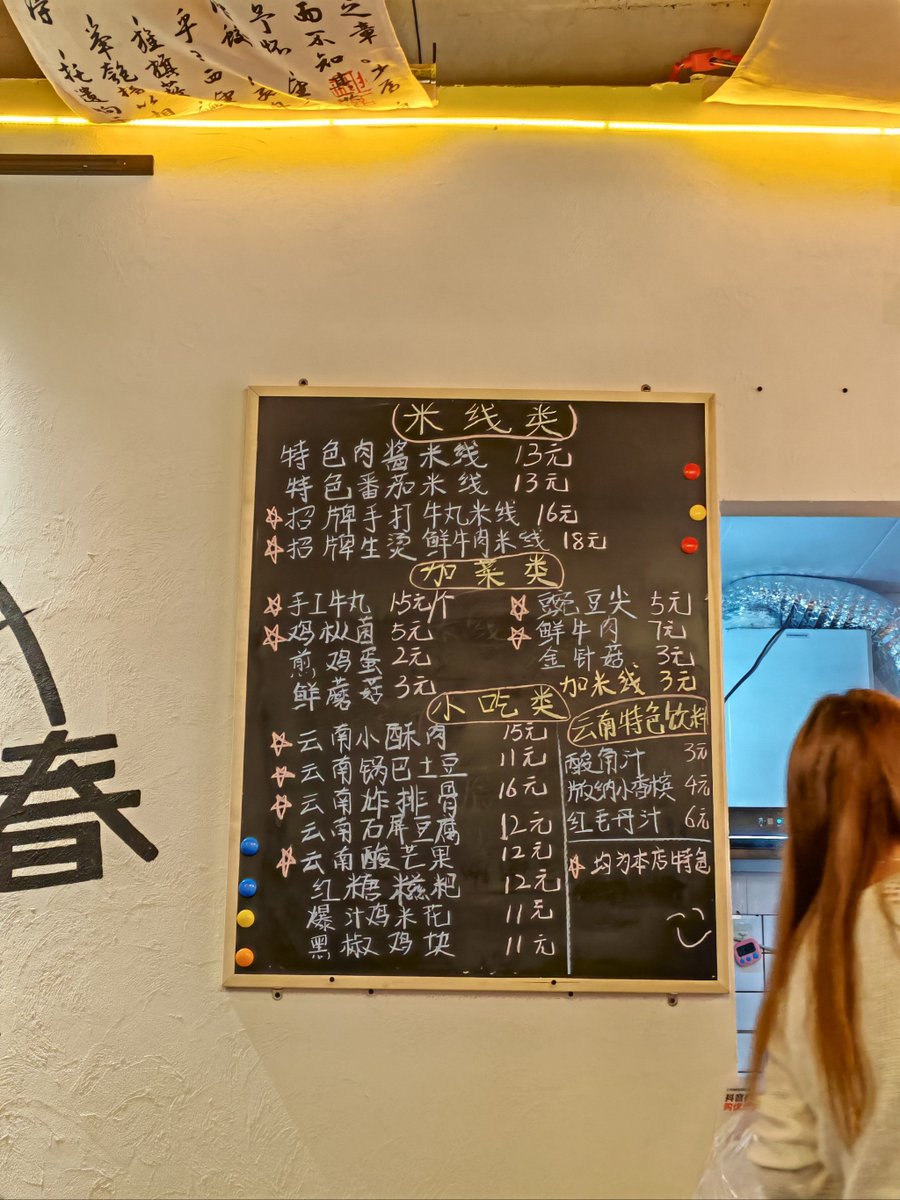 之章
而不知
米线类
特色肉酱米线 13元
特色番茄米线 13元
☆招牌手打牛丸米线 16元
☆招牌生烫鲜牛肉米线 18元
加菜类
☆手工牛丸 15元/个
☆鸡枞菌 5元
煎鸡蛋 2元
鲜蘑菇 3元
☆豌豆尖 5元
☆鲜牛肉 7元
金针菇 3元
加米线 3元
小吃类
☆云南小酥肉 15元
☆云南锅巴土豆 11元
☆云南炸排骨 16元
云南石屏豆腐 12元
☆云南酸芒果 12元
红糖糍粑 12元
爆汁鸡米花 11元
黑椒鸡块 11元
云南特色饮料
酸角汁 3元
版纳小香槟 4元
红毛丹汁 6元
☆均为本店特色
春
抖音